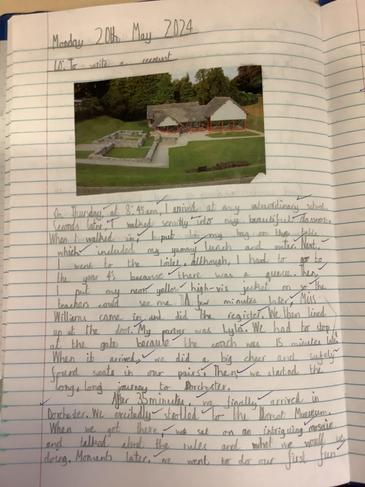 Monday 20th May 2024
LO: To write a recount
On Thursday, at 8:45am, I arrived at my extraordinary school.
Seconds later, I walked into my beautiful classroom.
When I walked in, I put my bag on the table
which included my yummy lunch and water. Next,
I went to the toilet, although, I had to go to
the year 4's because there was a queue. Then,
I put my neon yellow high-vis jacket on so the
teachers would see me. A few minutes later, Miss
Williams came in and did the register. We then lined
up at the door. My partner was Lyla. We had to stop
at the gate because the coach was 15 minutes late.
When it arrived, we did a big cheer and safely
found seats in our pairs. Then, we started the
long, long journey to Dorchester.
After 35 minutes, we finally arrived in
Dorchester. We excitedly strolled to the Dorset Museum.
When we got there, we sat on an intriguing mosaic
and talked about the rules and what we would be
doing. Moments later, we went to do our first fun